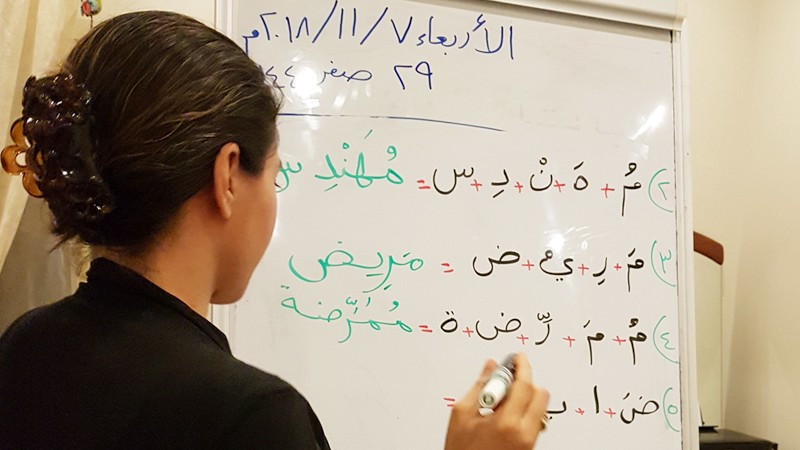 الأربعاء ٧/١١/٢٠١٨م
٢٩ صفر
٢) مُ + هَ + نْ + دِ + س = مُهَنْدِس
٣) مَ + رِ + ي + ض = مَرِيض
٤) مُ + مَ + رِّ + ض + ة = مُمَرِّضة
٥) ضَ + ا + ب =